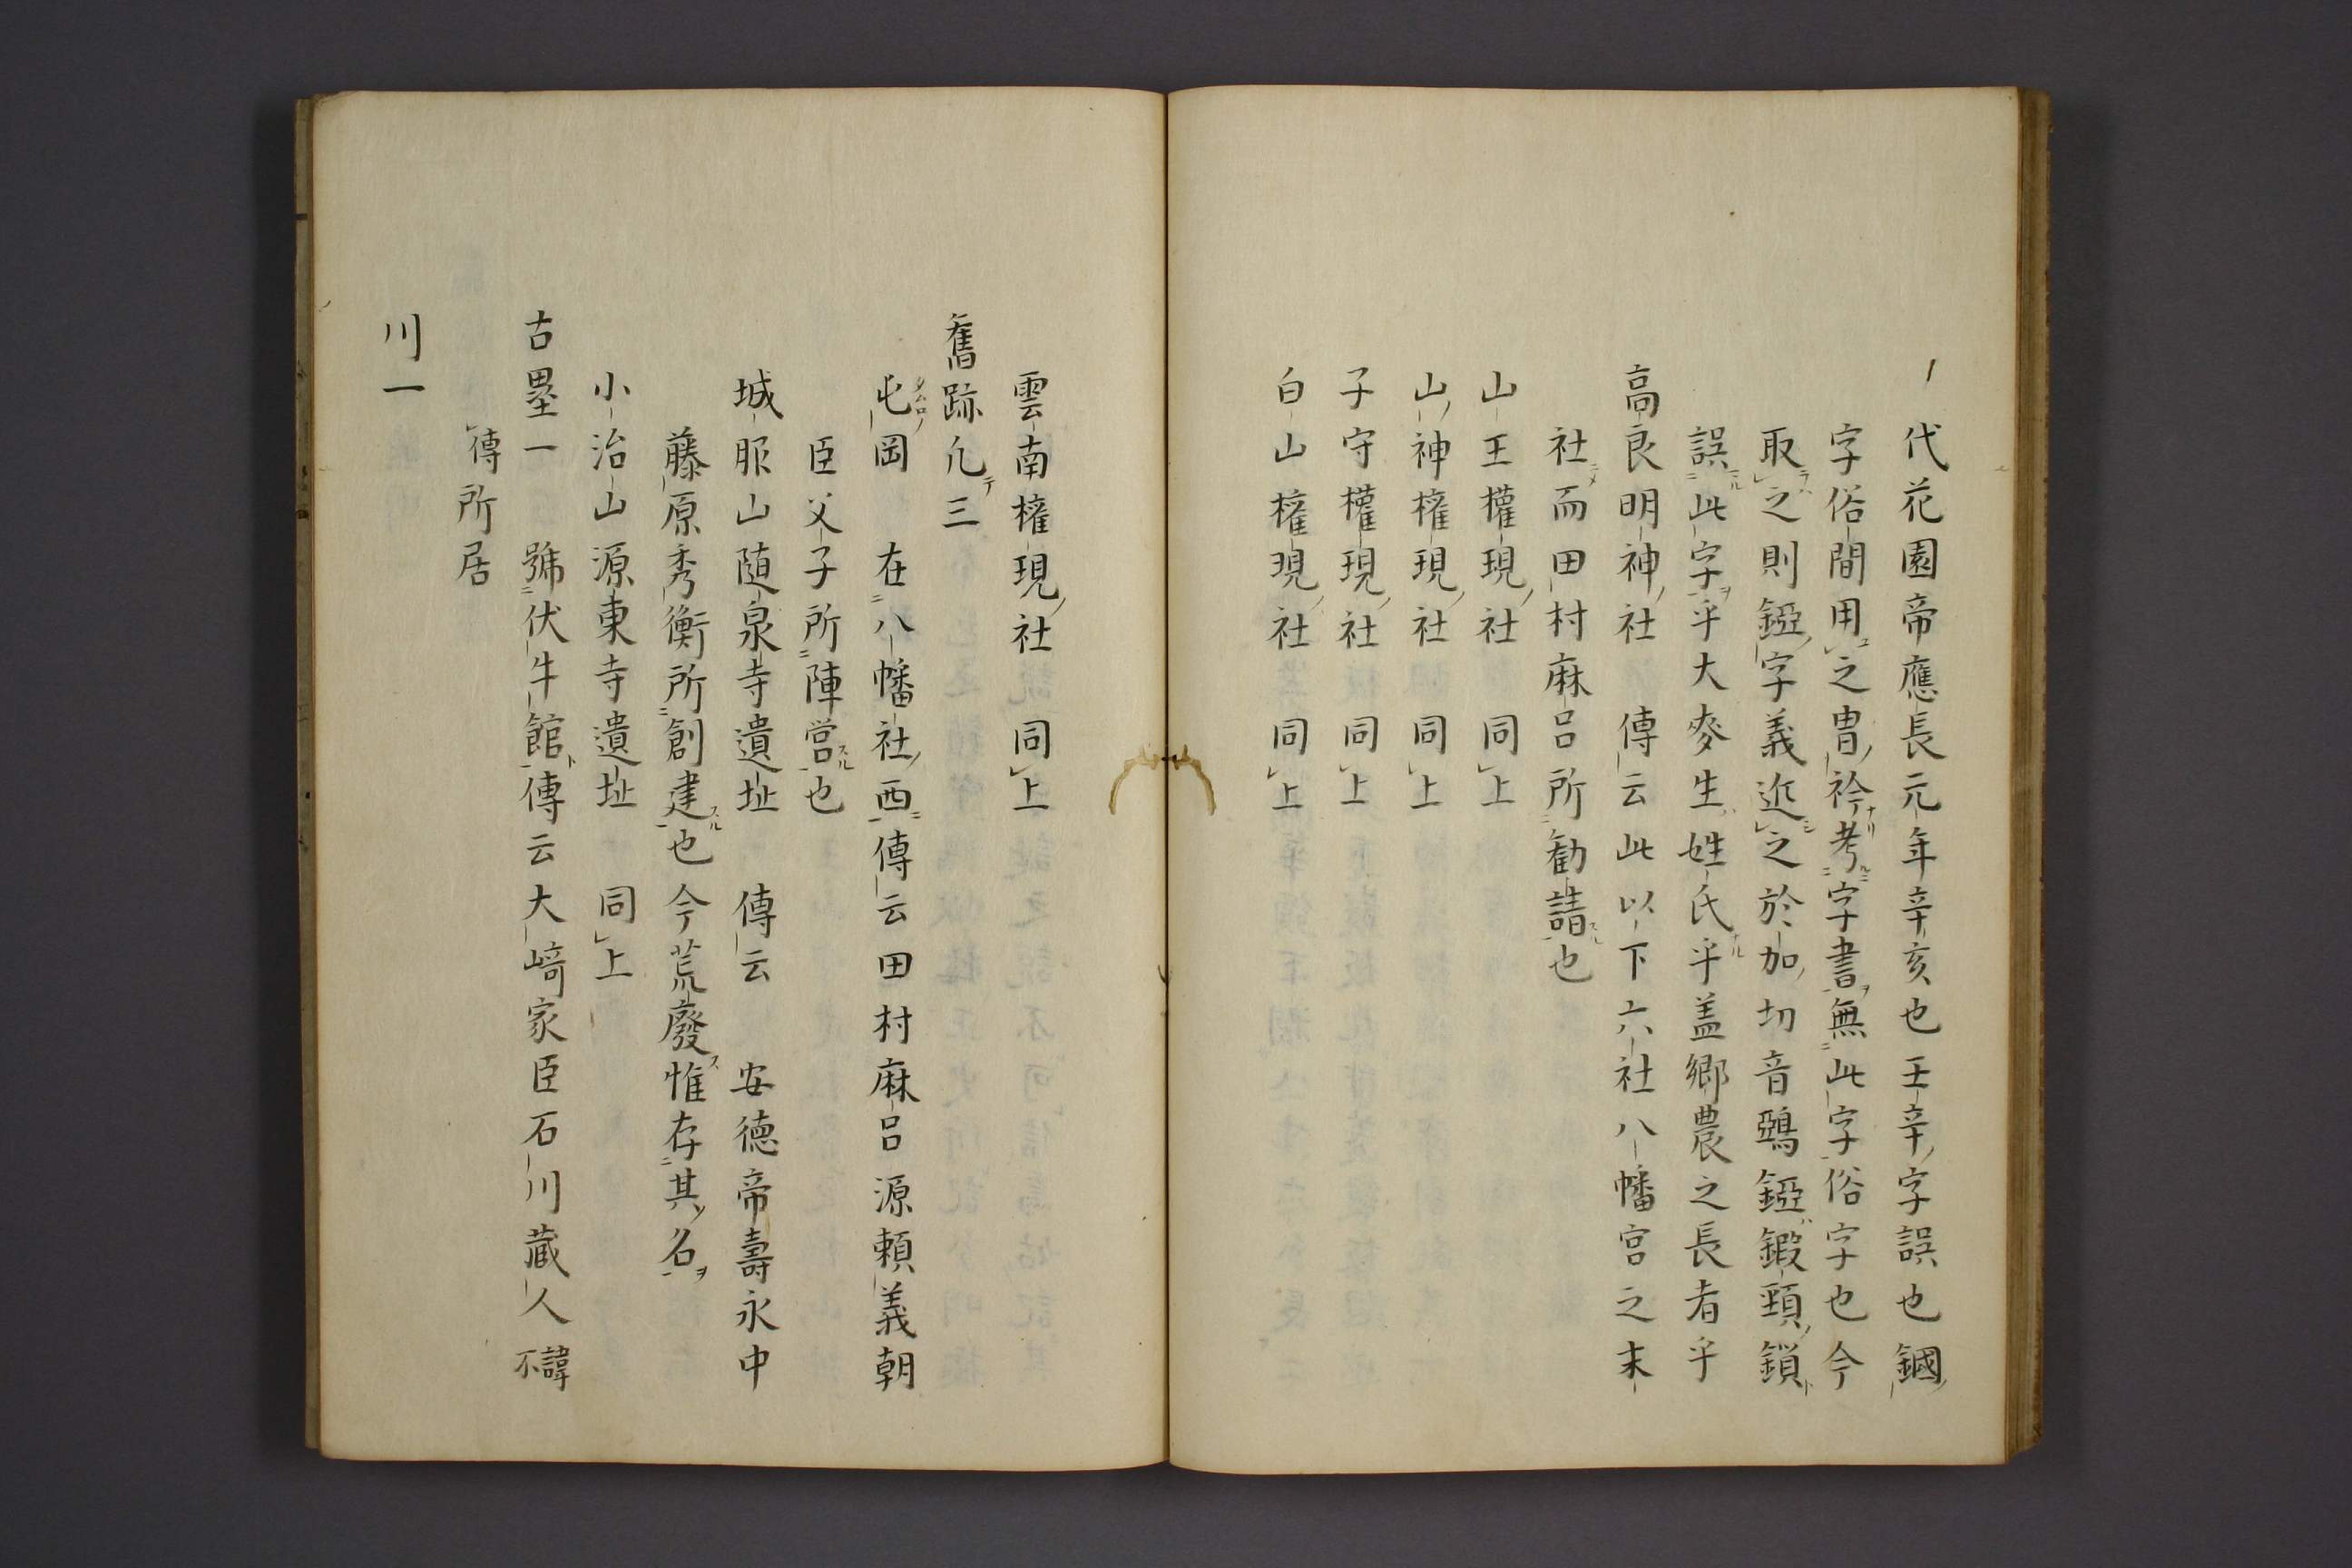 代花園帝應長元年辛亥也壬辛字誤也錮
字俗間用之胄衿考字書無此字俗字也今
取之則錏字義近之於加切音鵶錏鍜頸鎖
誤此字乎大麥生姓氏乎盖郷農之長者乎
高良明神社 傳云此以下六社八幡宮之末
社而田村麻呂所勧請也
山王權現社 同上
山神權現社 同上
子守權現社 同上
白山權現社 同上
雲南權現社 同上
舊跡凢三
屯岡 在八幡社西傳云田村麻呂源頼義朝
臣父子所陣営也
城服山随泉寺遺址 傳云 安徳帝壽永中
藤原秀衡所創建也今荒廢惟存其名
小治山源東寺遺址 同上
古壘一 號伏牛館傳云大﨑家臣石川藏人諱不
傳所居
川一